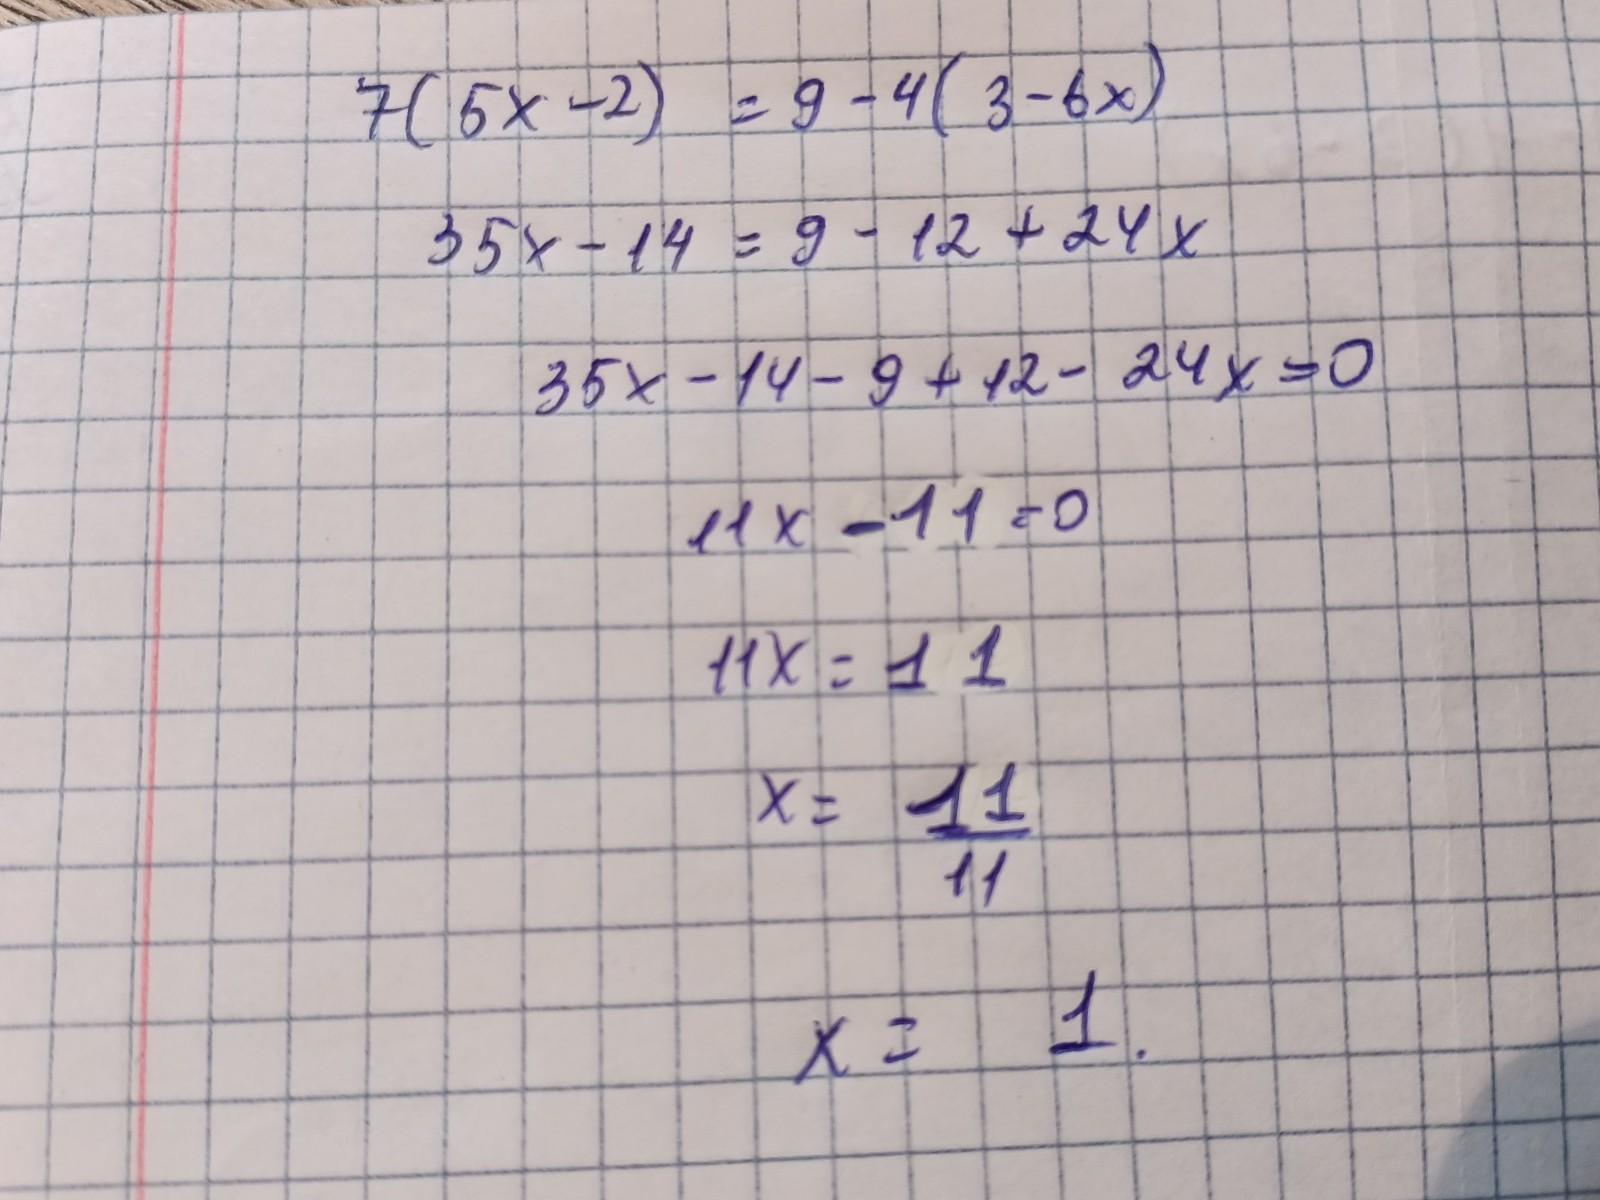 7(5x-2) = 9-4(3-6x)
35x-14 = 9-12+24x
35x-14-9+12-24x=0
11x-11=0
11x=11
x=11/11
x=1.